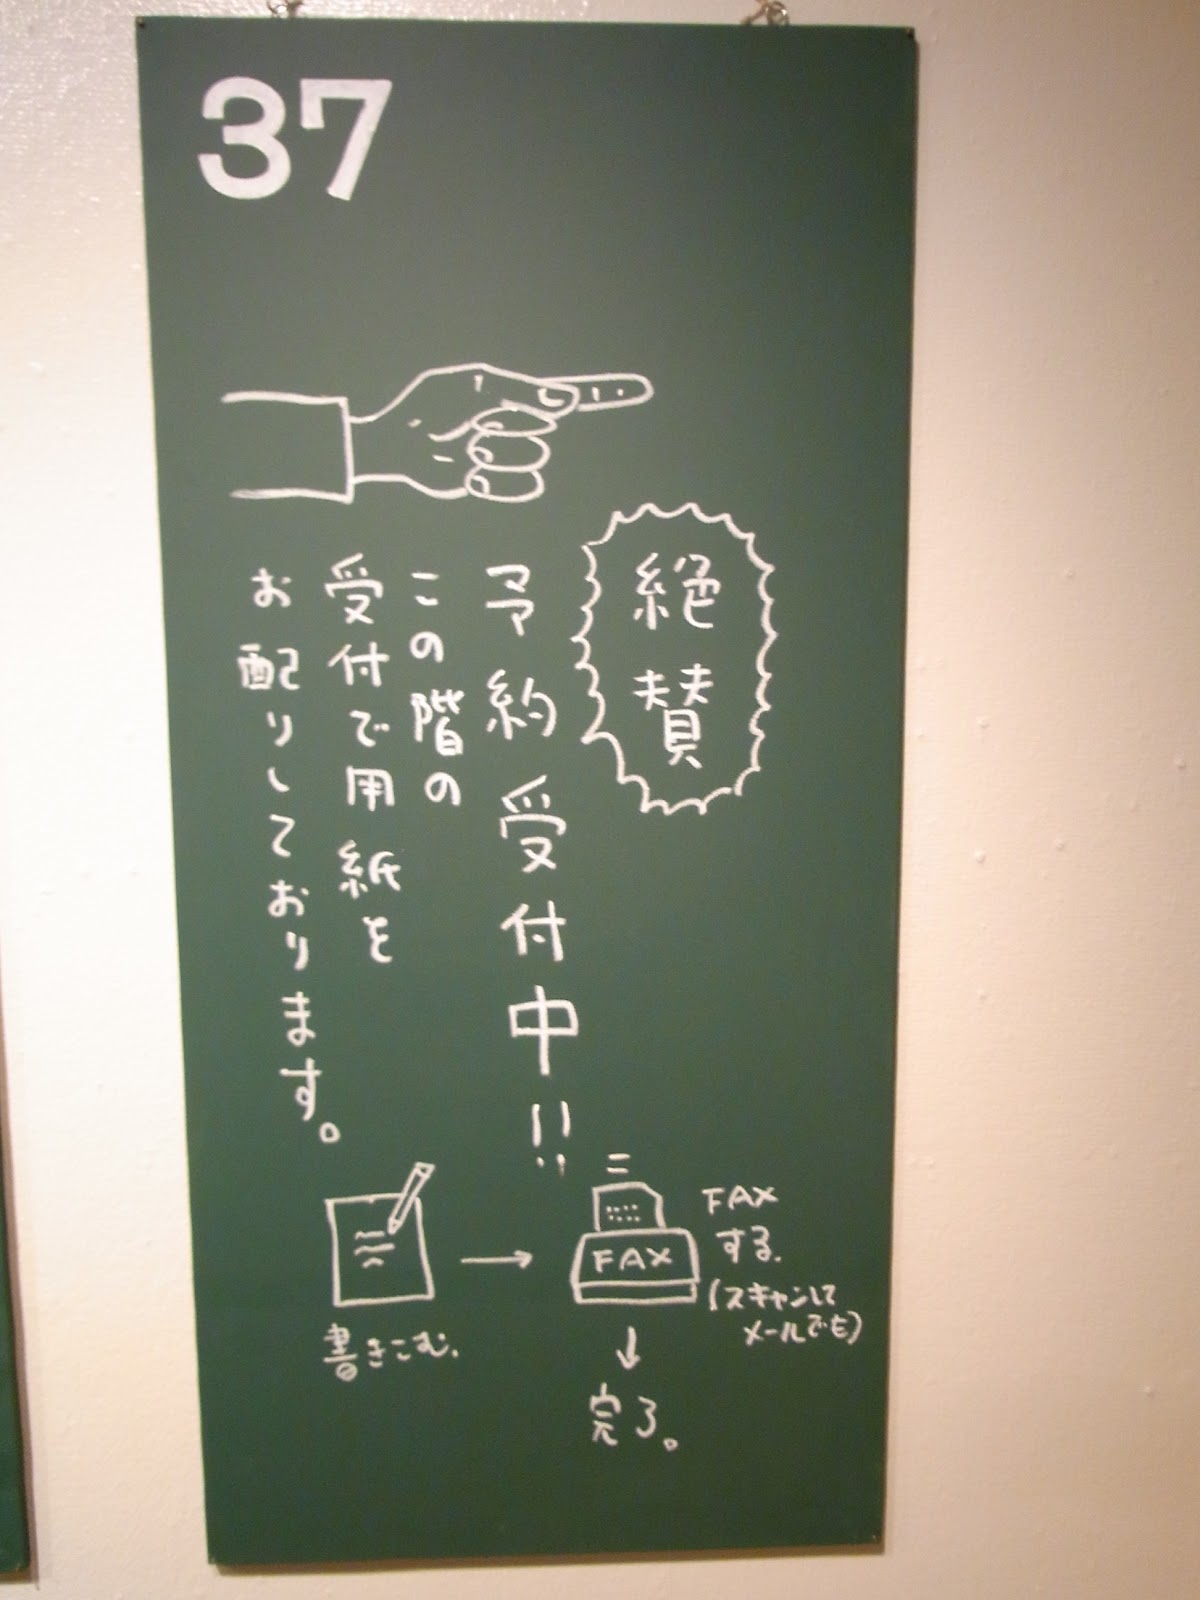 37
絶賛
予約受付中!!
この階の
受付で用紙を
お配りしております。
書きこむ.
FAX
FAX
する.
(スキャンして
メールでも)
完了。